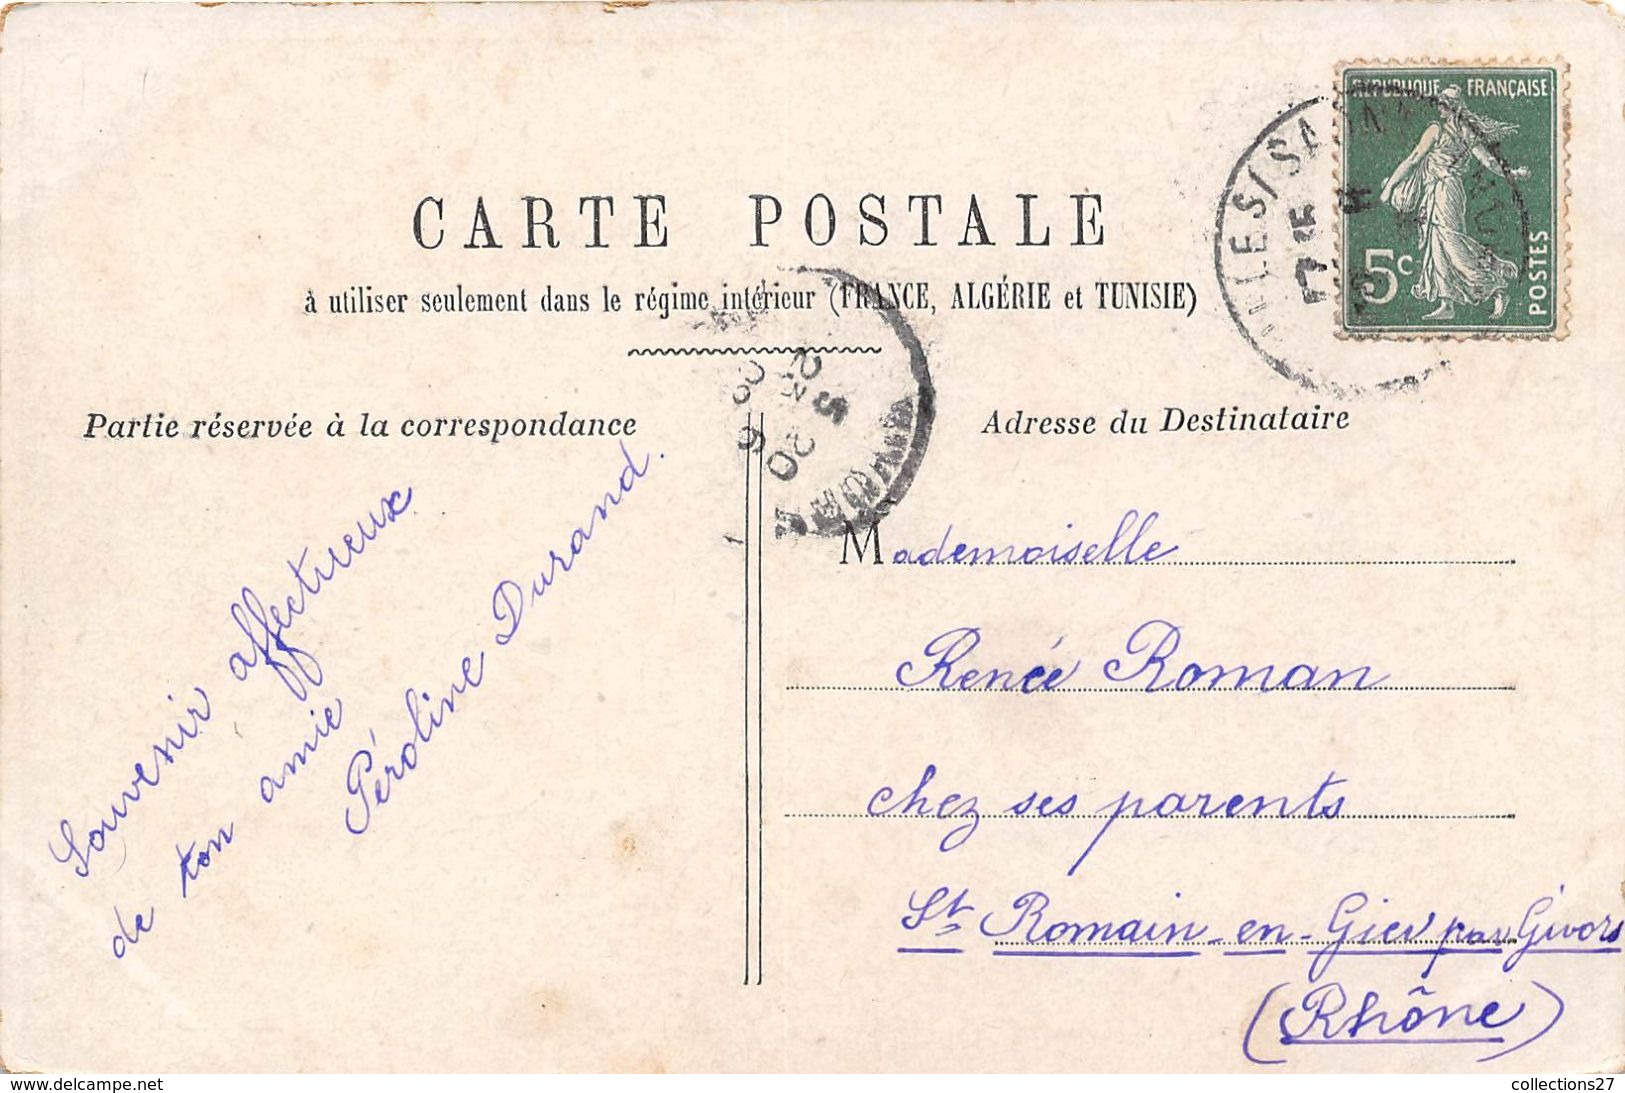 RÉPUBLIQUE FRANÇAISE
5c
POSTES
CARTE POSTALE
à utiliser seulement dans le régime intérieur (FRANCE, ALGÉRIE et TUNISIE)
Partie réservée à la correspondance
Souvenir affectueux
de ton amie
Péroline Durand.
Adresse du Destinataire
Mademoiselle
Renée Roman
chez ses parents
St Romain-en-Gier par Givors
(Rhône)
collections27